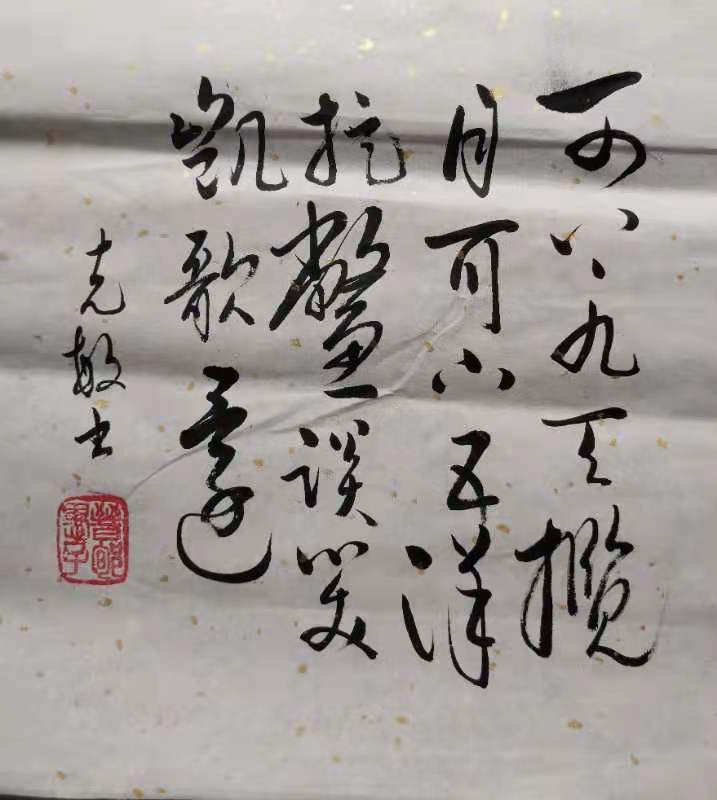 可上九天揽
月可下五洋
捉鳖谈笑
凯歌还
克敏书